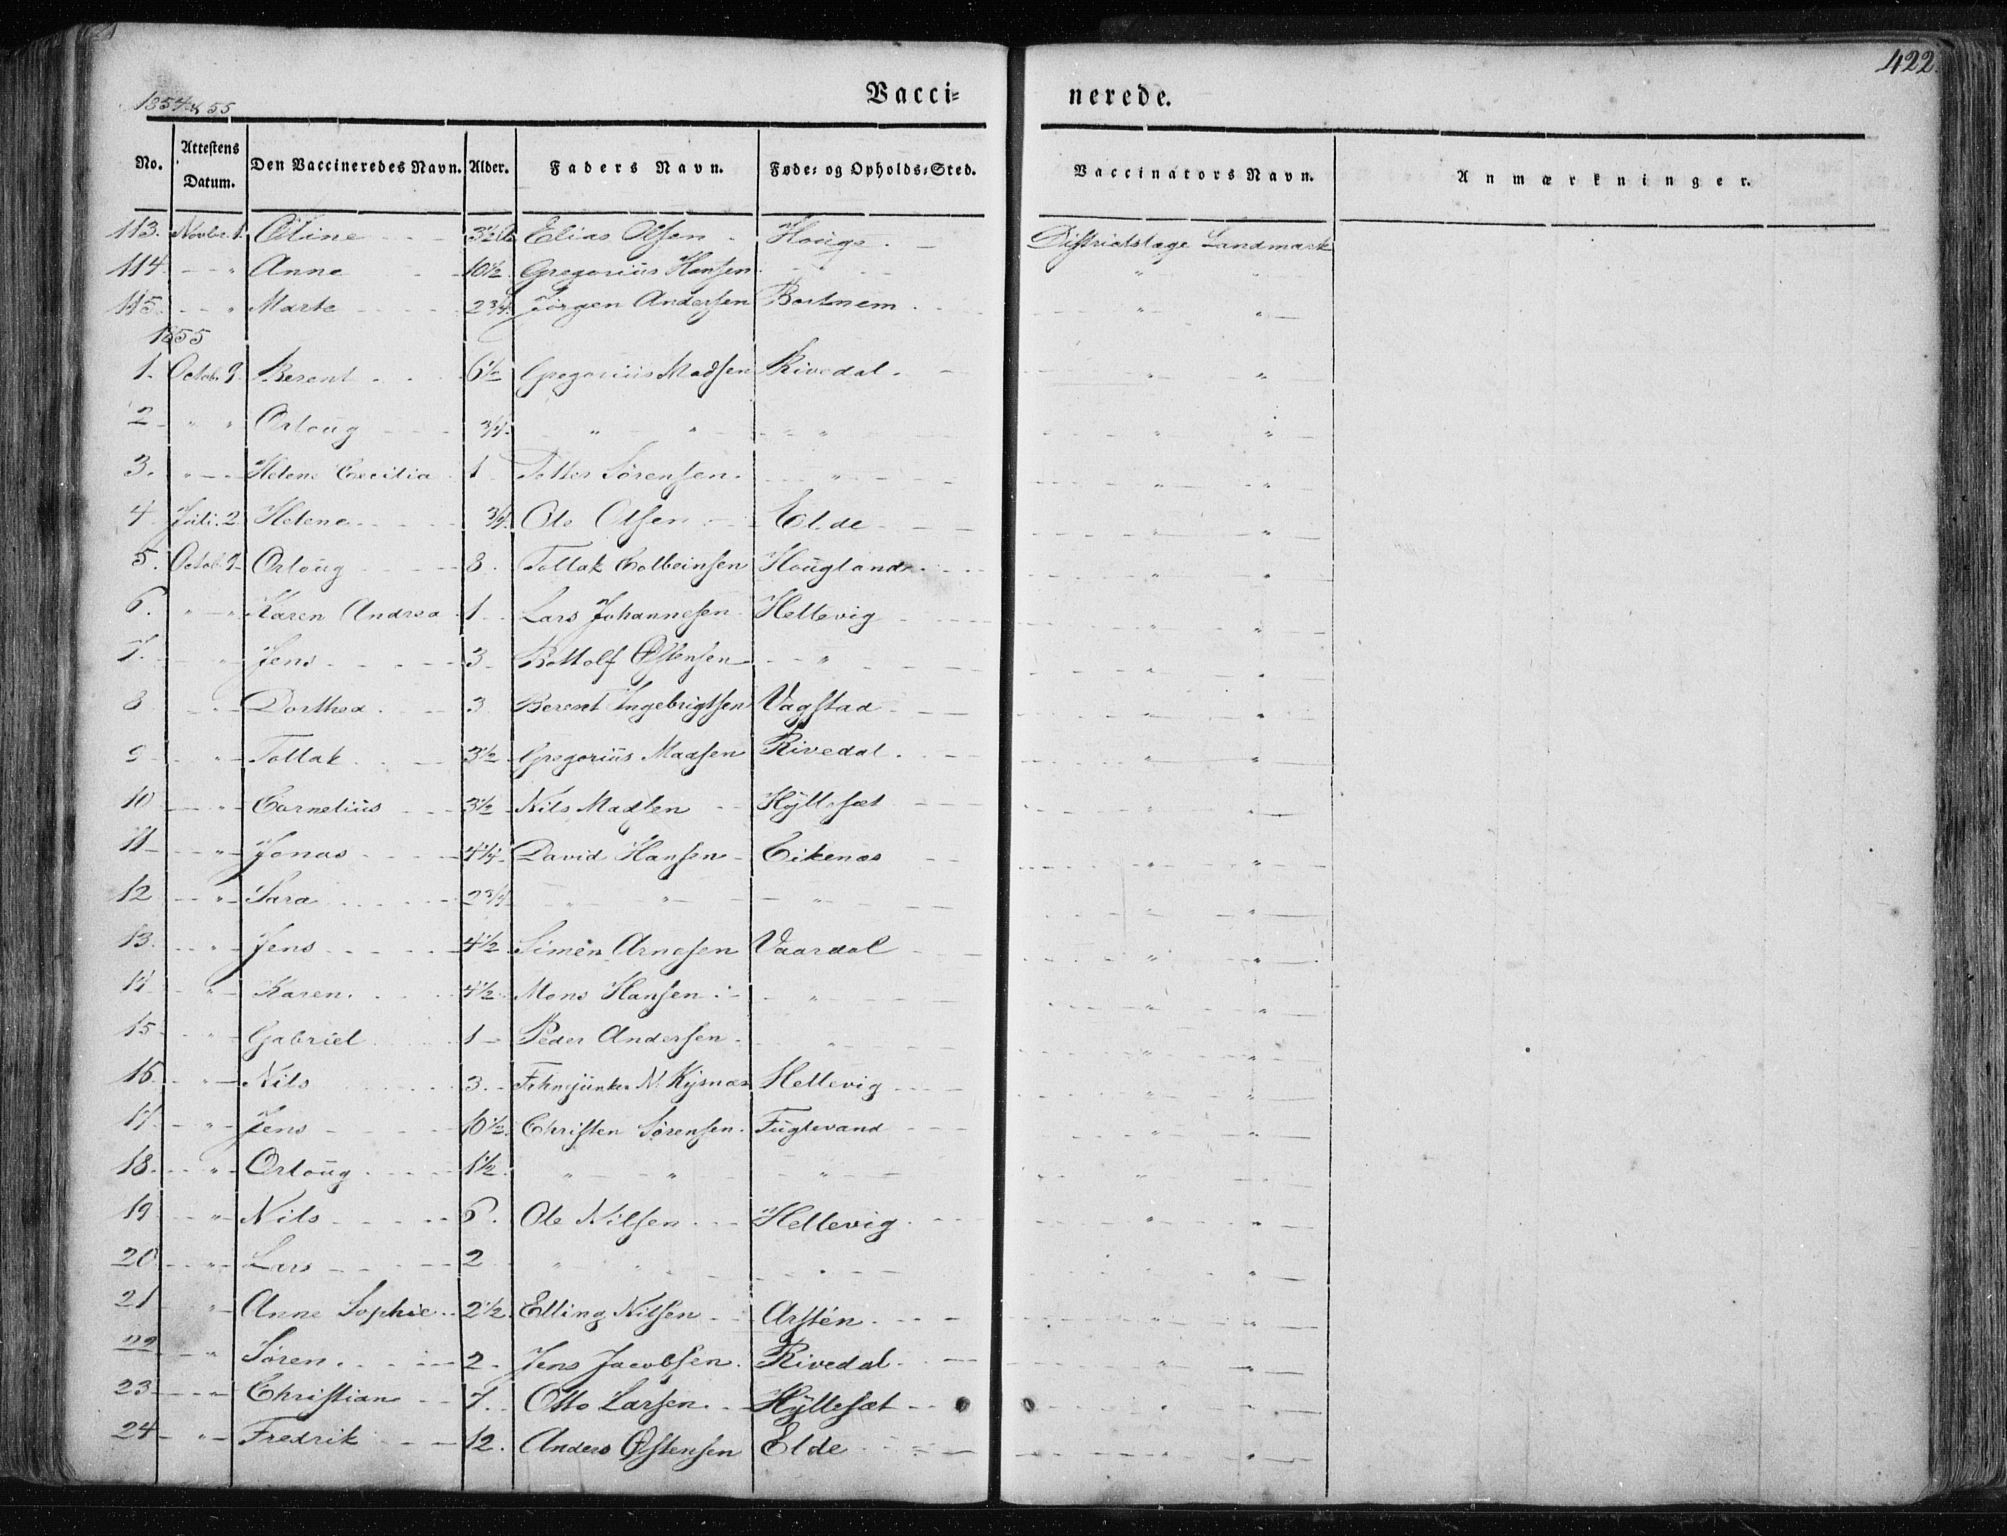 422.
1854 & 55
Vacci= nerede.
No. Attestens Datum. Den Vaccineredes Navn. Alder. Faders Navn. Føde= og Opholds=Sted. Vaccinators Navn. Anmærkninger.
113. Novbr. 1. Oline 3½ Elias Olsen Houge. Landmark
114 " Anne 10½ Gregorius Hansen " " "
115 " Marte 2¾ Jørgen Andersen " "
1855
1. Octob. 9. Berent 6½ Gregorius Madsen Rivedal. " "
2 " " Ortoug ¾ " " " " "
3. " " Helene Cecilia 1 Sørensen. " " "
4 Juli. 2. Helene ¾ Ole Olsen Elde " "
5. Octob. 9 Ortoug 8. Tollak Colbeinsen Hougland " "
6. " " Karen Andrea 1. Lars Johannesen Hellevig " "
7. " Jens 3 Botolf Østensen " " "
8 " Dorthea 3 Berent Ingebrigtsen Vagstad " "
9 " Tollak 3½ Gregorius Madsen Rivedal. " "
10 " Cornelius 3½ Nils Madsen Hÿllesæt " "
11 " Jonas 4¼ David Hansen Eikenæs " "
12 " Sara 2¾ " " " " "
13. " Jens 4½ Simen Arnesen Vaardal " "
14 " Karen. 4½ Mons Hansen " " "
15 " Gabriel 1 Peder Andersen. " " "
16. " Nils 3. N. Hellevig " "
17. " Jens 10½ Christen Sørensen. Fuglevand " "
18. " Ortoug 1½ " " " " "
19 " Nils 6. Ole Nilsen Hellevig. " "
20 " Lars 2 " " " " "
21 " Anne Sophie 2½ Elling Nilsen Arstén. " "
22 " Søren. 2. Jens Jacobsen. Rivedal. " "
23 " Christian 7. Otto Larsen. Hÿllesæt " "
24 " Fredrik 12. Anders Østensen Elde " "